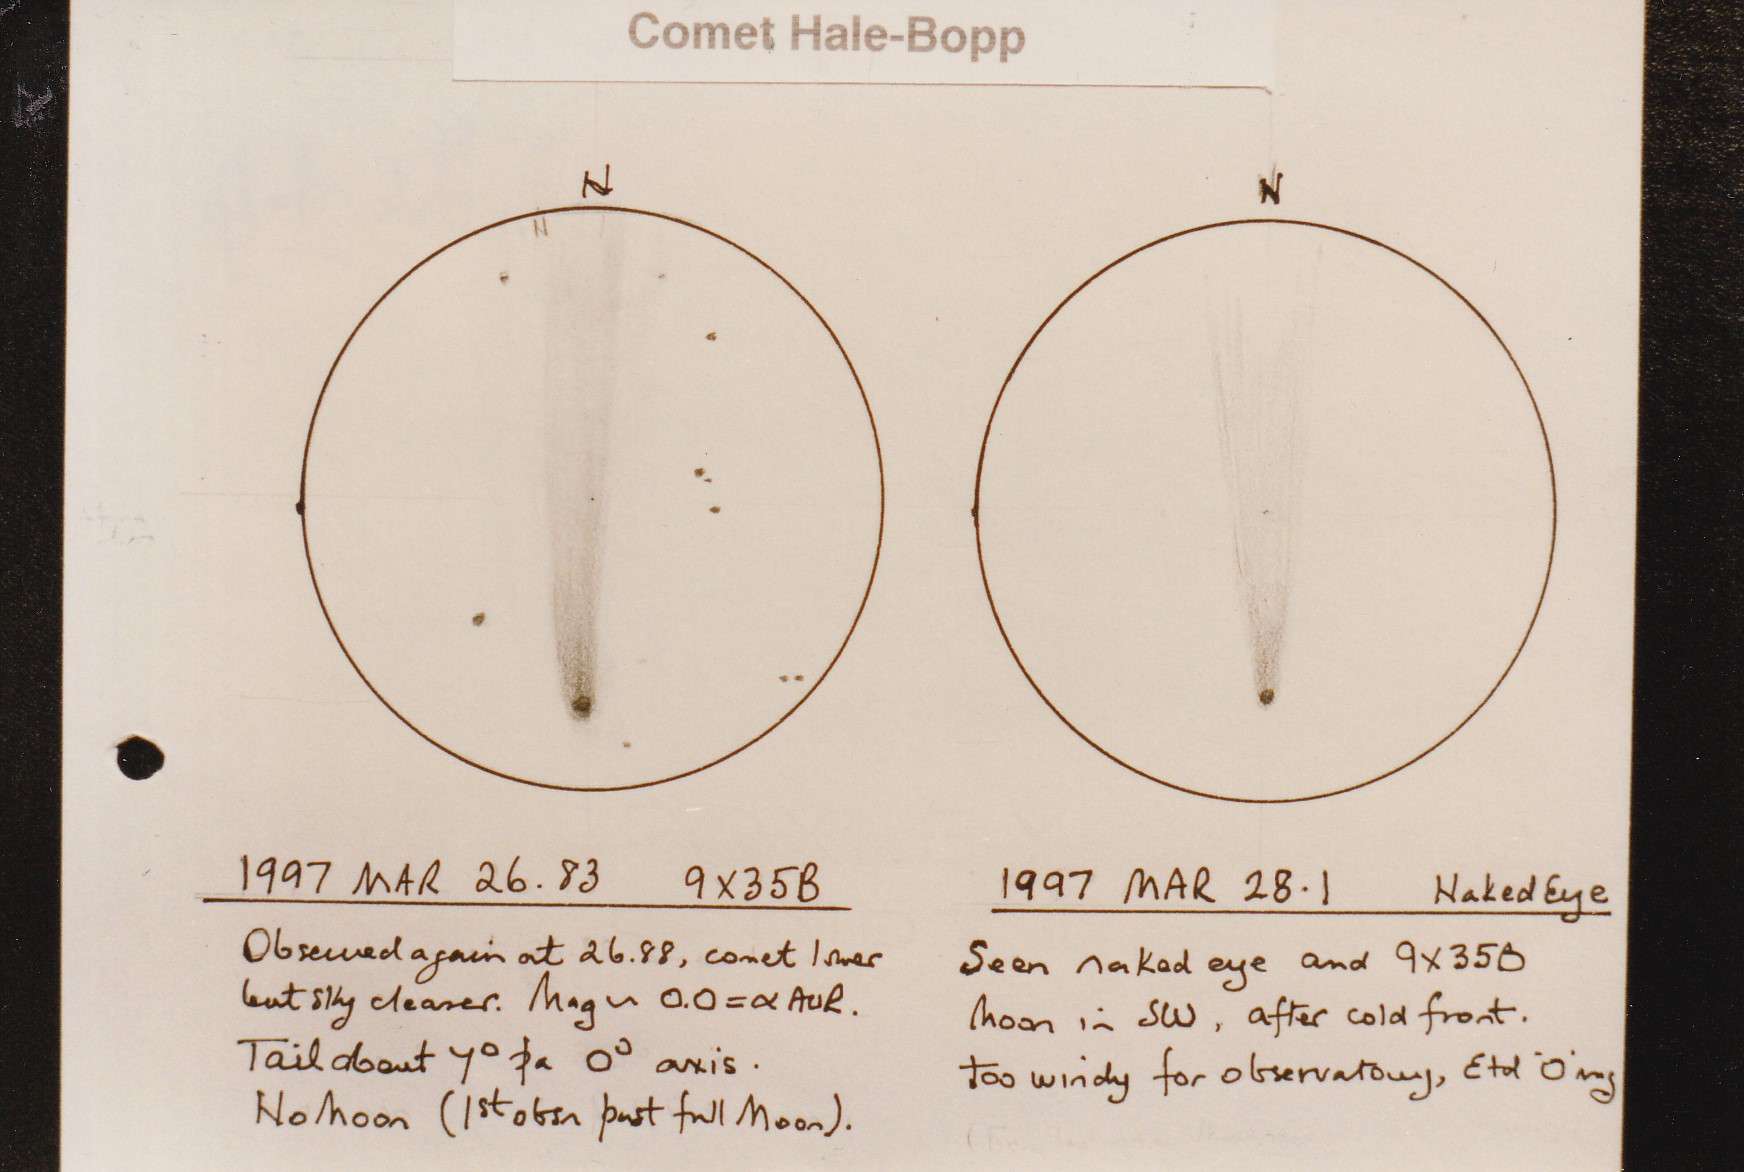 Comet Hale-Bopp
N
N
N
1997 MAR 26.83 9X35B
Observed again at 26.88, comet lower
but sky clearer. Mag ~ 0.0 = α AUR.
Tail about 4° pa 0° axis.
No Moon (1st obsn past full Moon).
1997 MAR 28.1 Naked Eye
Seen naked eye and 9X35B
Moon in SW, after cold front.
too windy for observatory,